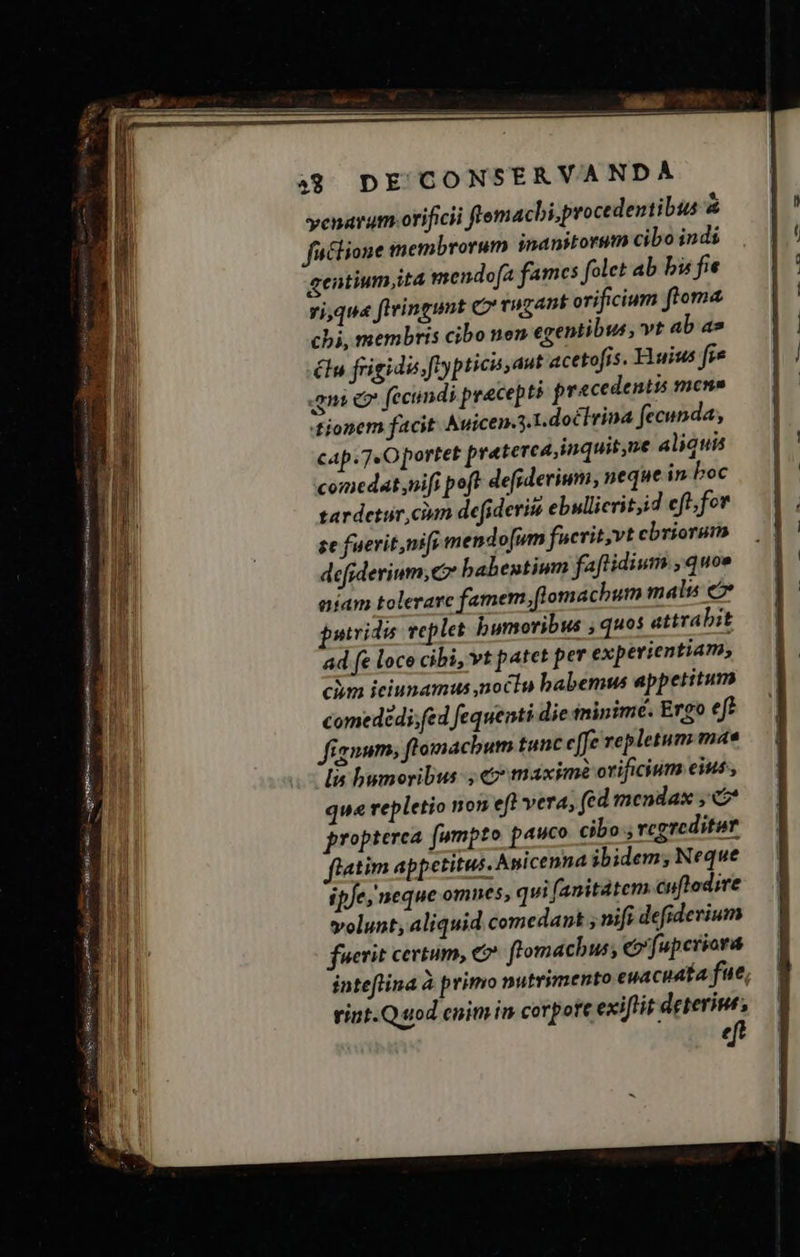 28 DE CONSERVANDA
venarum orificii ſtomachi, procedentibus à
ſuctione membrorum inanitorum cibo indi
gentium, ita mendoſa fames ſolet ab his fie
ri, quæ ſtringunt & rugant orificium ſtoma
chi, membris cibo non egentibus, vt ab a-
ctu frigidis, ſtypticis, aut acetoſis. Huius ſi-
gni & ſecundi præcepti præcedentis men-
tionem facit Auicen. 3.1. doctrina ſecunda,
cap. 7. Oportet præterea, inquit, ne aliquis
comedat, niſi poſt deſiderium, neque in hoc
tardetur, cùm deſideriũ ebullierit, id eſt, for
te fuerit, niſi mendoſum fuerit, vt ebriorum
deſiderium, & habentium faſtidium, quo-
niam tolerare famem, ſtomachum malis &
putridis replet humoribus, quos attrahit
ad ſe loco cibi, vt patet per experientiam,
cùm ieiunamus, noctu habemus appetitum
comedẽdi, ſed ſequenti die minimé. Ergo eſt
ſignum, ſtomachum tunc eſſe repletum ma-
lis humoribus, & maximè orificium eius,
quæ repletio non eſt vera, ſed mendax, &
propterea ſumpto pauco cibo, regreditur
ſtatim appetitus. Auicenna ibidem, Neque
ipſe, neque omnes, qui ſanitatem cuſtodire
volunt, aliquid comedant, niſi deſiderium
fuerit certum, & ſtomachus, & ſuperiora
inteſtina à primo nutrimento euacuata fue,
rint. Quod enim in corpore exiſtit deterius,
eſt